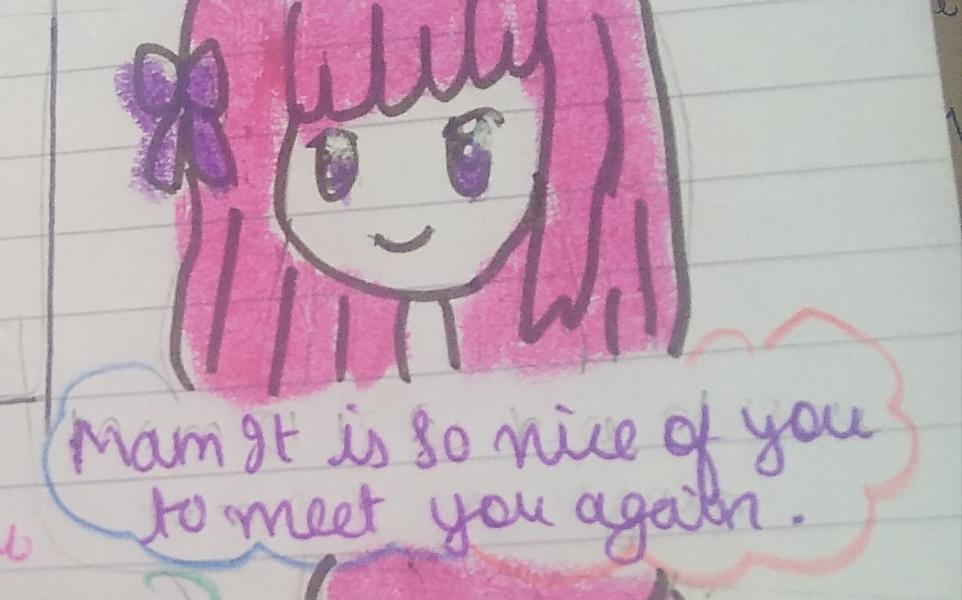 Mam It is so nice of you
to meet you again.